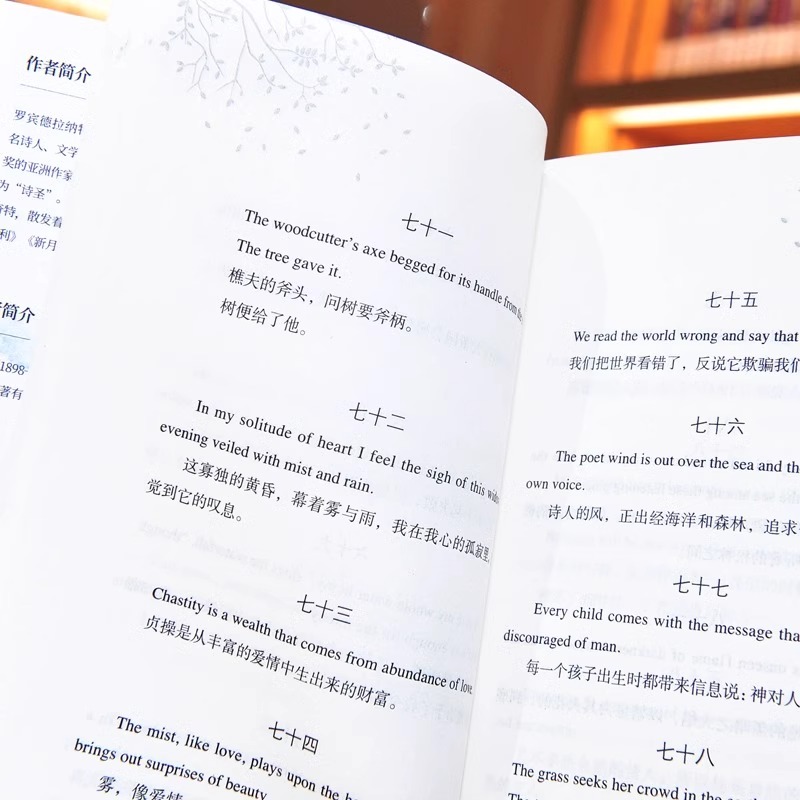 作者简介
罗宾德拉纳特
名诗人、文学
奖的亚洲作家
为“诗圣”。
奇特，散发着
利》《新月
者简介
1898-
著有
七十一
The woodcutter's axe begged for its handle from the
The tree gave it.
樵夫的斧头，问树要斧柄。
树便给了他。
七十二
In my solitude of heart I feel the sigh of this wide
evening veiled with mist and rain.
这寡独的黄昏，幕着雾与雨，我在我心的孤寂里，
觉到它的叹息。
七十三
Chastity is a wealth that comes from abundance of love.
贞操是从丰富的爱情中生出来的财富。
七十四
The mist, like love, plays upon the
brings out surprises of beauty
雾，像爱情
七十五
We read the world wrong and say that
我们把世界看错了，反说它欺骗我们
七十六
The poet wind is out over the sea and the
own voice.
诗人的风，正出经海洋和森林，追求
七十七
Every child comes with the message that
discouraged of man.
每一个孩子出生时都带来信息说：神对人
七十八
The grass seeks her crowd in the